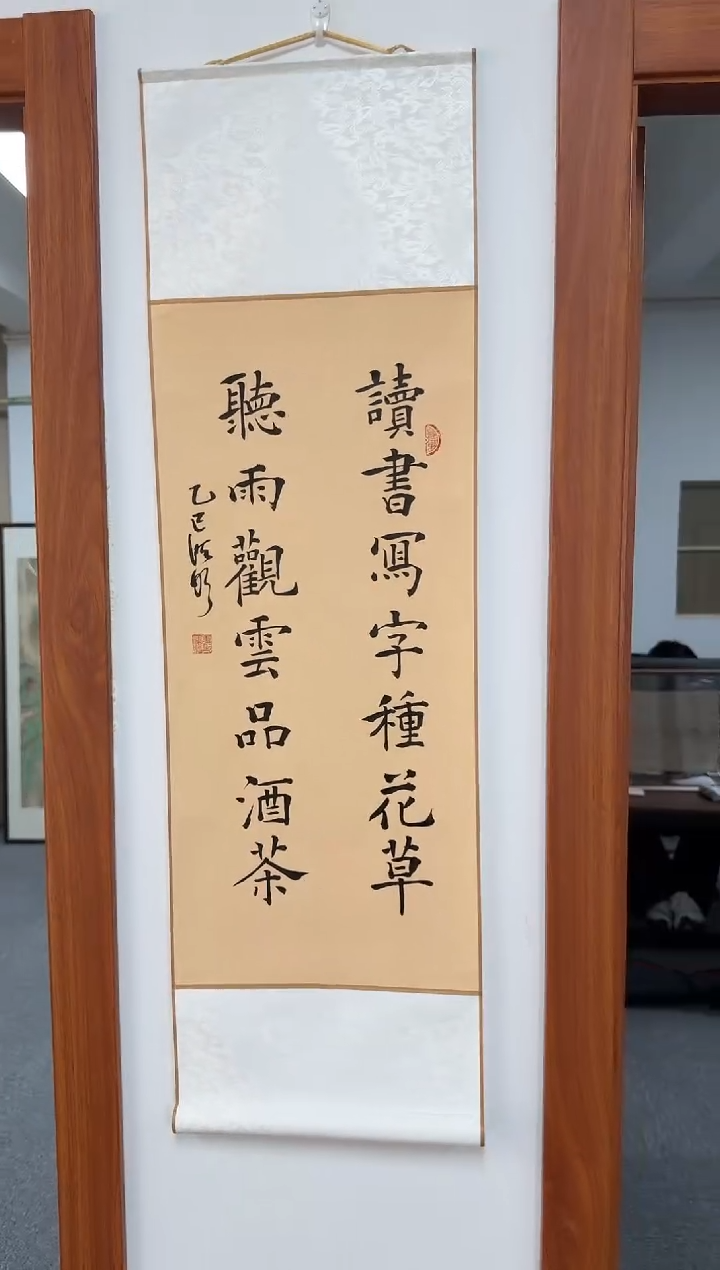 讀書寫字種花草
聽雨觀雲品酒茶
乙巳